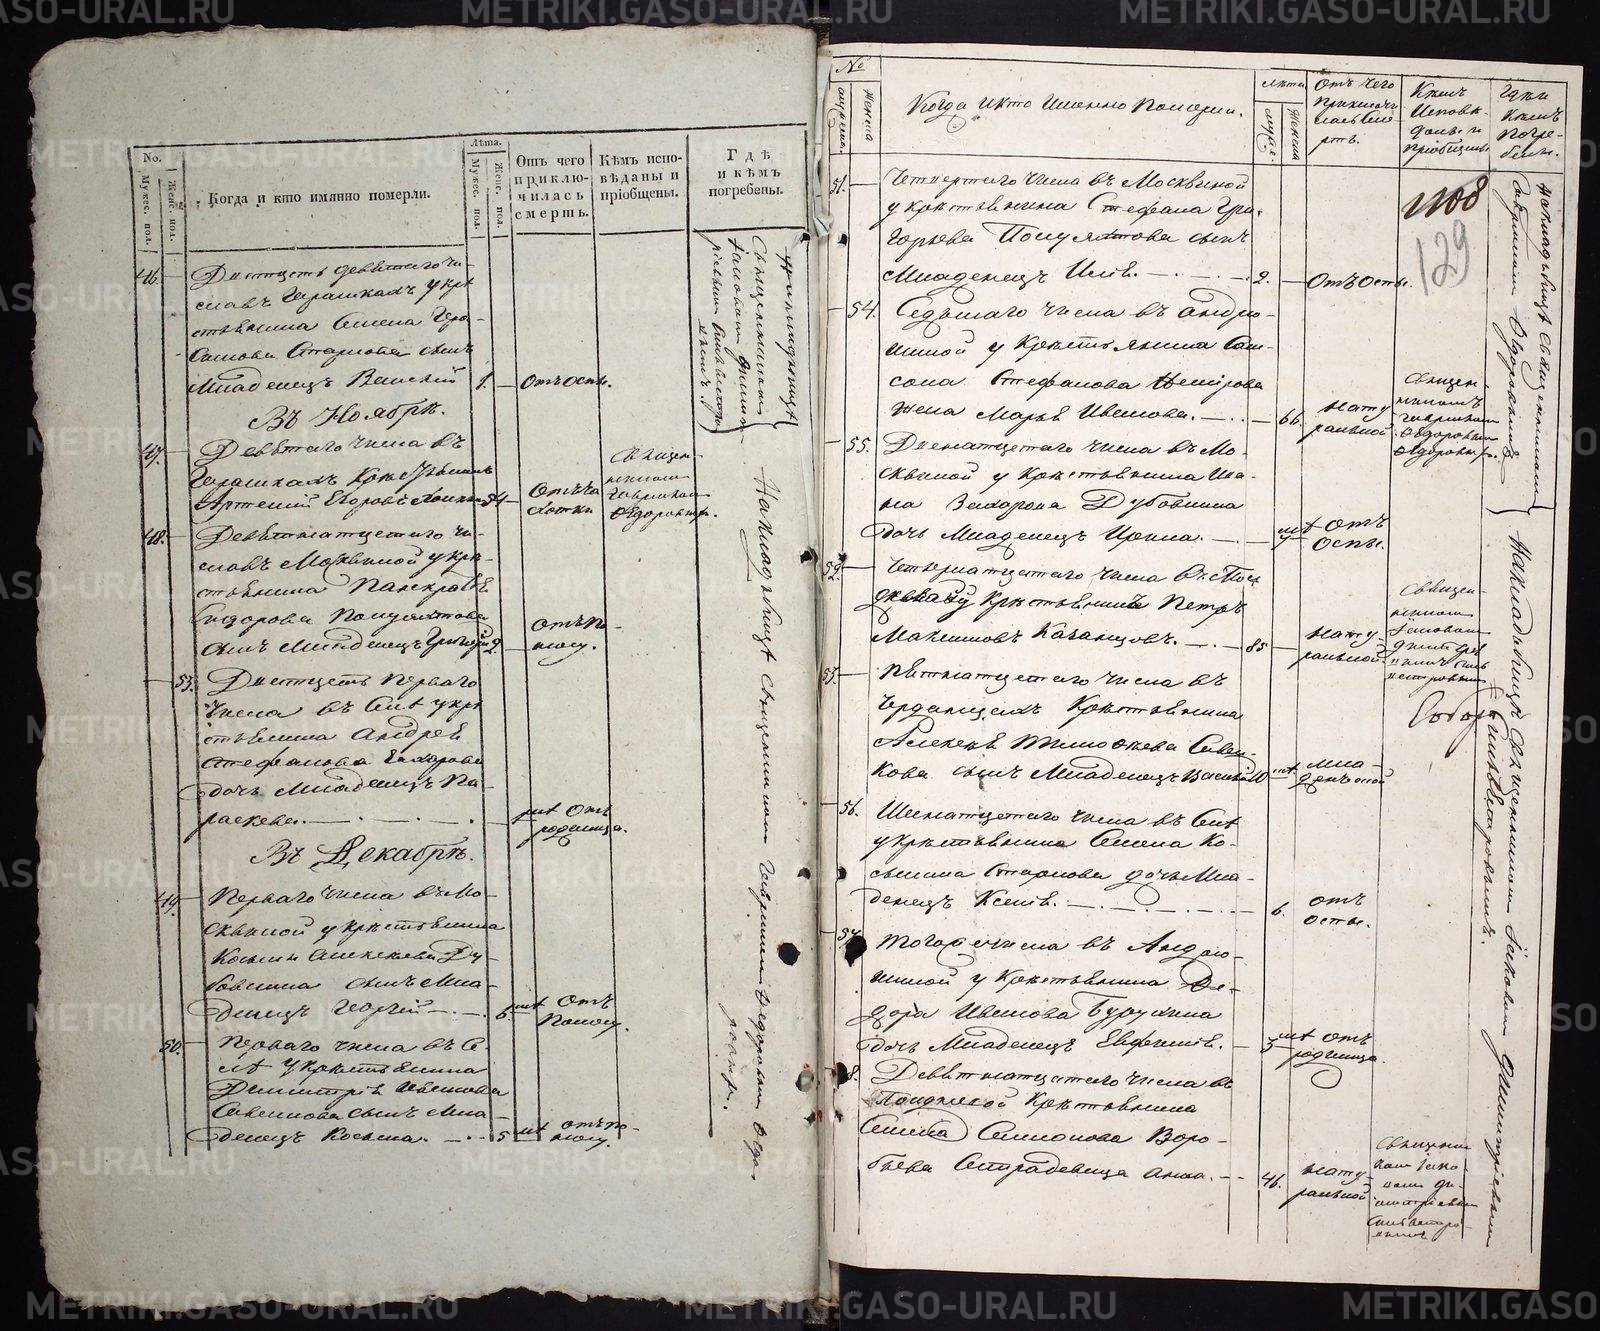 METRIKI.GASO-URAL.RU
No.
Мужес. пол.
Женс. пол.
Когда и кто имянно померли.
Лѣта.
Мужес. пол.
Женс. пол.
Отъ чего
приклю-
чилась
смерть.
Кѣмъ испо-
вѣданы и
пріобщены.
Гдѣ
и кѣмъ
погребены.
46.
Дватцеть девятаго чи-
сла въ
стьянина Семена Гера-
симова Старкова сынъ
младенецъ Василій 1. отъ оспы.
Въ Ноябрѣ.
47.
Девятаго числа въ
Артемій Егоровъ 54 отъ ча
хотки
священ-
никомъ
Гавриломъ
Ѳедоровым.
48.
Девятнатцетаго чи-
сла въ Москвиной у кре-
стьянина Панкратья
Сидорова Полуяхтова
сынъ младенецъ Григорій 2 отъ по-
носу.
53.
Дватцеть перваго
числа въ селѣ у кре
стьянина Андрея
Стефанова Захарова
дочь младенецъ Па-
раскева. отъ
родимца.
Въ Декабрѣ.
49.
Перваго числа въ Мо-
сквиной у крестьянина
Косьмы Алексѣева Ду-
бовкина сынъ мла-
денецъ Георгій 6. отъ
поносу.
50.
Перваго числа въ се-
лѣ у крестьянина
Димитрія Иванова
Савенкова сынъ мла-
денецъ Косьма. 5 отъ по-
носу.
На кладбищѣ священникомъ Гавриломъ Ѳедоровымъ
№
мужеска
женска
Когда и кто именно померли.
лѣта
мужес
женска
Отъ чего
приключи
лась сме-
рть.
Кѣмъ
исповѣ-
даны и
пріобщены
Гдѣ и
кѣмъ
погре-
бены.
1108
129
51.
Четвертаго числа въ Москвиной
у крестьянина Стефана Гри-
горьева Полуяхтова сынъ
младенецъ Илія. 2. отъ оспы.
54.
Седьмаго числа въ Андрю-
шиной у крестьянина Сам-
сона Стефанова
жена Марья Иванова. 66. нату
ральной
священ-
никомъ
Гавриломъ
Ѳедоровым
55.
Двенатцетаго числа въ Мо-
сквиной у крестьянина Ива-
на Захарова Дубовкина
дочь младенецъ Ирина. отъ
оспы.
52.
Четырнатцетаго числа въ
крестьянинъ Петръ
Максимовъ Казанцовъ. 85 нату-
ральной
священ-
никомъ
Іаковомъ
Димитріе
Собор
Пятнатцетаго числа въ
крестьянина
Алексея Тимофеева Савен-
кова сынъ младенецъ Василій 10 мла-
денской
56.
Шеснатцетаго числа въ селѣ
у крестьянина Семена Ко-
сьмина Старкова дочь мла-
денецъ Ксенія. 6. отъ
оспы.
57
Того же числа въ Андрю-
шиной у крестьянина Ѳе-
дора Иванова Бурухина
дочь младенецъ Евфимія. 5 отъ
родимца.
8.
Девятнатцетаго числа въ
крестьянина
Семена Симонова Воро-
бьева Страдовица Анна. 46. нату-
ральной
священни
комъ Іако-
вомъ Ди-
митріевым
На кладбищѣ священникомъ
Гавриломъ Ѳедоровымъ
На кладбищѣ священникомъ Іаковомъ Димитріевымъ
Сильвестровымъ.